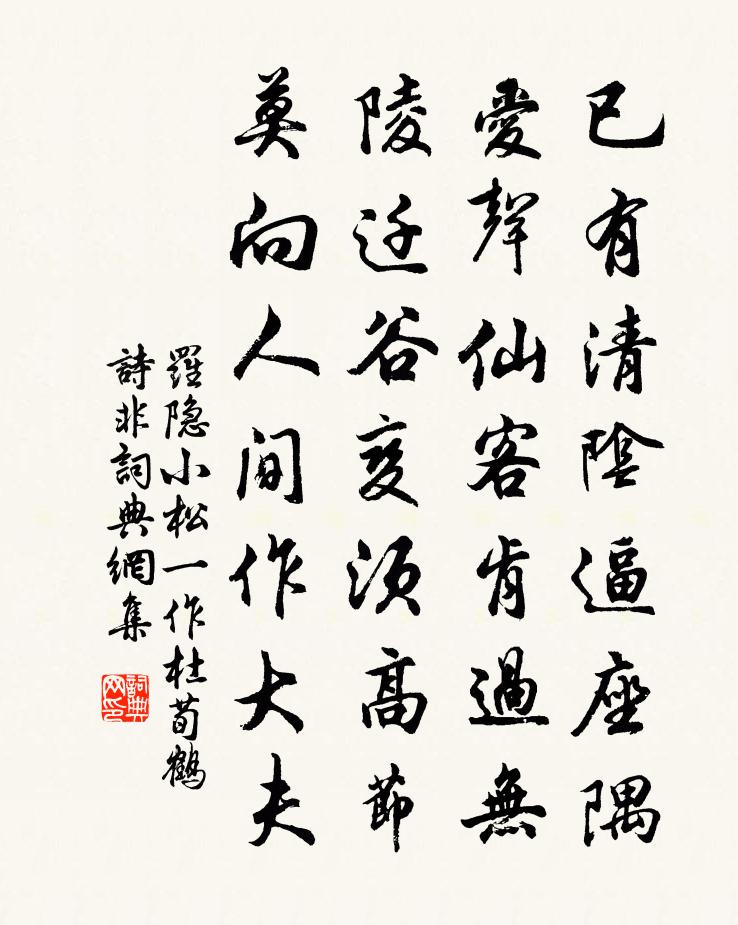 已有清陰逼座隅
愛聲仙客肯過無
陵迁谷变须高節
莫向人间作大夫
羅隐小松一作杜荀鶴
詩非詞典網集
詞典网印